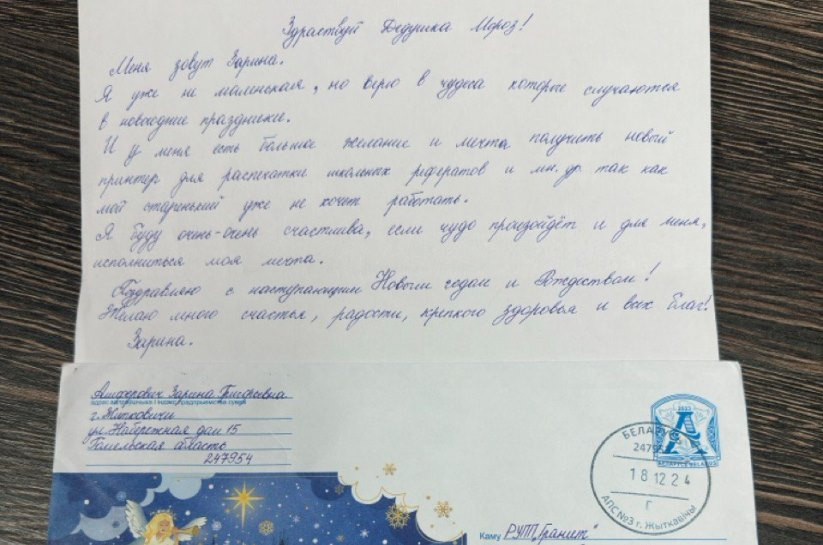 Здраствуй Дедушка Мороз!
Меня зовут Зарина.
Я уже не маленькая, но верю в чудеса которые случаются
в новогодние праздники.
И у меня есть большое желание и мечта получить новый
принтер для распечатки школьных рефератов и мн. др так как
мой старенький уже не хочет работать.
Я буду очень-очень счастлива, если чудо произойдёт и для меня,
исполниться моя мечта.
Поздравляю с наступающим Новым годом и Рождеством!
Желаю много счастья, радости, крепкого здоровья и всех благ!
Зарина.
Зарина Григорьевна
г. Житковичи
ул. Набережная дом 15
Гомельская область
247954
2023
А
БЕЛАРУСЬ
18 12 24
г
АПС №3 г. Жыткавічы
Каму РУПП "Гранит"